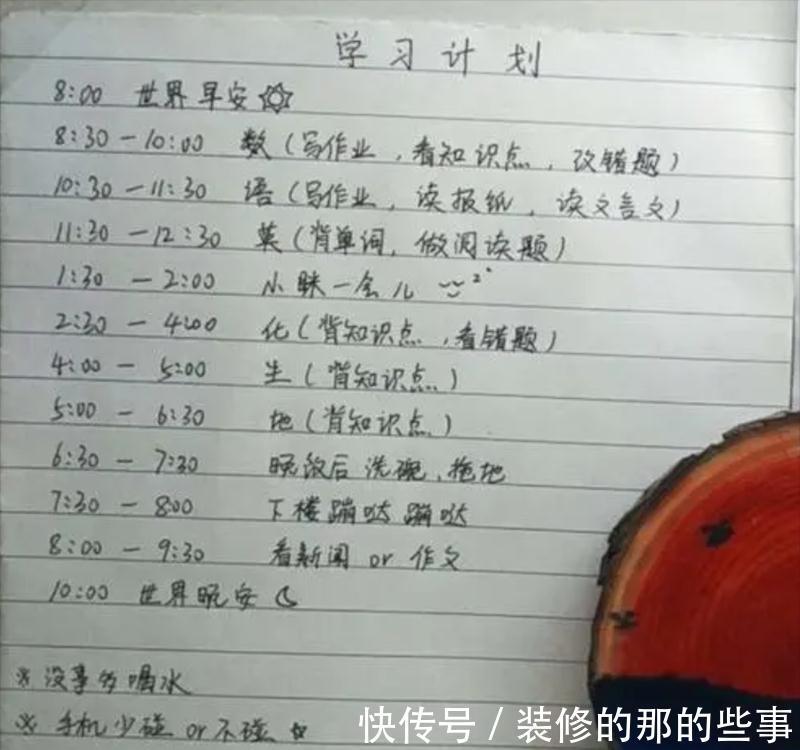 学习计划
8:00 世界早安
8:30 — 10:00 数(写作业,看知识点,改错题)
10:30 — 11:30 语(写作业,读报纸,读文言文)
11:30 — 12:30 英(背单词,做阅读题)
1:30 — 2:00 小眯一会儿
2:30 — 4:00 化(背知识点,看错题)
4:00 — 5:00 生(背知识点)
5:00 — 6:30 地(背知识点)
6:30 — 7:30 晚饭后洗碗,拖地
7:30 — 8:00 下楼蹦哒蹦哒
8:00 — 9:30 看新闻 or 作文
10:00 世界晚安
※ 没事多喝水
※ 手机少碰 or 不碰
快传号 / 装修的那的些事